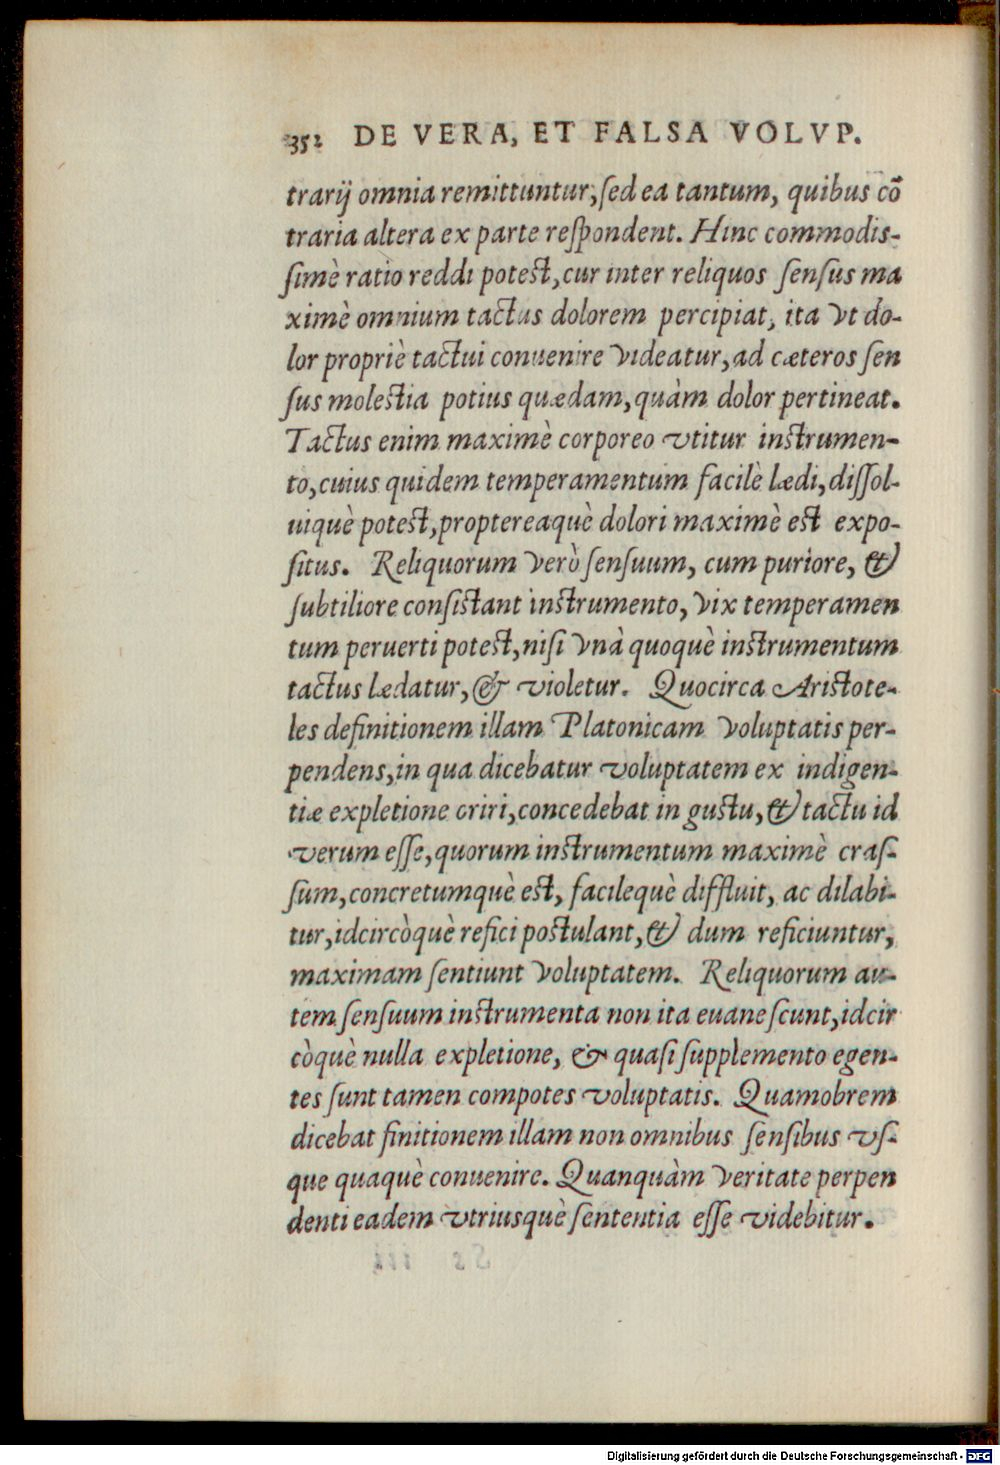 352 DE VERA, ET FALSA VOLVP.
trarij omnia remittuntur, sed ea tantum, quibus cō
traria altera ex parte respondent. Hinc commodis-
simè ratio reddi potest, cur inter reliquos sensus ma
ximè omnium tactus dolorem percipiat, ita vt do-
lor propriè tactui conuenire videatur, ad cæteros sen
sus molestia potius quædam, quàm dolor pertineat.
Tactus enim maximè corporeo vtitur instrumen-
to, cuius quidem temperamentum facilè lædi, dissol-
uiquè potest, proptereaquè dolori maximè est expo-
situs. Reliquorum verò sensuum, cum puriore, &
subtiliore consistant instrumento, vix temperamen
tum peruerti potest, nisi vnà quoquè instrumentum
tactus lædatur, & violetur. Quocirca Aristote-
les definitionem illam Platonicam voluptatis per-
pendens, in qua dicebatur voluptatem ex indigen-
tiæ expletione oriri, concedebat in gustu, & tactu id
verum esse, quorum instrumentum maximè cras-
sum, concretumquè est, facilequè diffluit, ac dilabi-
tur, idcircòquè refici postulant, & dum reficiuntur,
maximam sentiunt voluptatem. Reliquorum au-
tem sensuum instrumenta non ita euanescunt, idcir
còquè nulla expletione, & quasi supplemento egen-
tes sunt tamen compotes voluptatis. Quamobrem
dicebat finitionem illam non omnibus sensibus vs-
que quaquè conuenire. Quanquàm veritate perpen
denti eadem vtriusquè sententia esse videbitur.
Digitalisierung gefördert durch die Deutsche Forschungsgemeinschaft - DFG